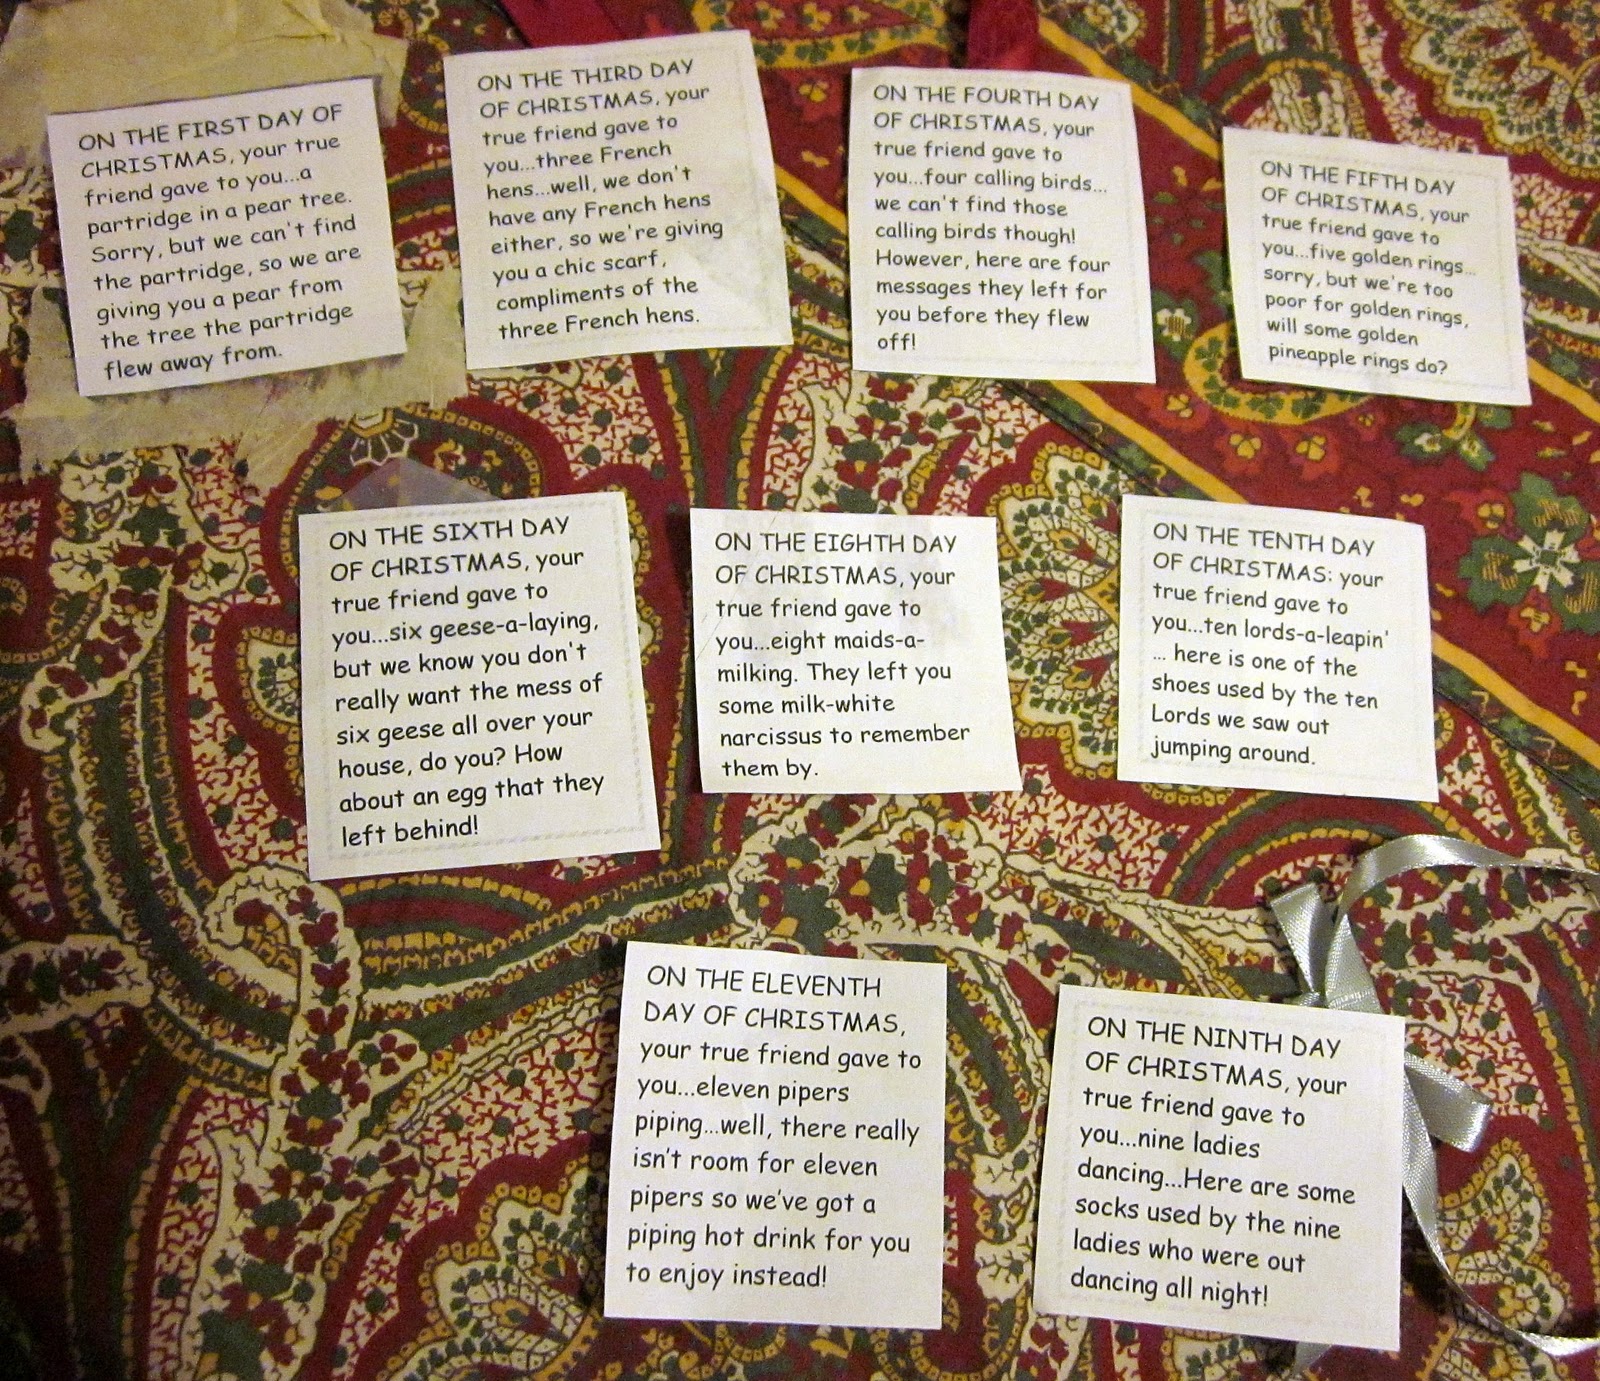 ON THE FIRST DAY OF
CHRISTMAS, your true
friend gave to you...a
partridge in a pear tree.
Sorry, but we can't find
the partridge, so we are
giving you a pear from
the tree the partridge
flew away from.
ON THE THIRD DAY
OF CHRISTMAS, your
true friend gave to
you...three French
hens...well, we don't
have any French hens
either, so we're giving
you a chic scarf,
compliments of the
three French hens.
ON THE FOURTH DAY
OF CHRISTMAS, your
true friend gave to
you...four calling birds...
we can't find those
calling birds though!
However, here are four
messages they left for
you before they flew
off!
ON THE FIFTH DAY
OF CHRISTMAS, your
true friend gave to
you...five golden rings...
sorry, but we're too
poor for golden rings,
will some golden
pineapple rings do?
ON THE SIXTH DAY
OF CHRISTMAS, your
true friend gave to
you...six geese-a-laying,
but we know you don't
really want the mess of
six geese all over your
house, do you? How
about an egg that they
left behind!
ON THE EIGHTH DAY
OF CHRISTMAS, your
true friend gave to
you...eight maids-a-
milking. They left you
some milk-white
narcissus to remember
them by.
ON THE TENTH DAY
OF CHRISTMAS: your
true friend gave to
you...ten lords-a-leapin'
... here is one of the
shoes used by the ten
Lords we saw out
jumping around.
ON THE ELEVENTH
DAY OF CHRISTMAS,
your true friend gave to
you...eleven pipers
piping...well, there really
isn't room for eleven
pipers so we've got a
piping hot drink for you
to enjoy instead!
ON THE NINTH DAY
OF CHRISTMAS, your
true friend gave to
you...nine ladies
dancing...Here are some
socks used by the nine
ladies who were out
dancing all night!